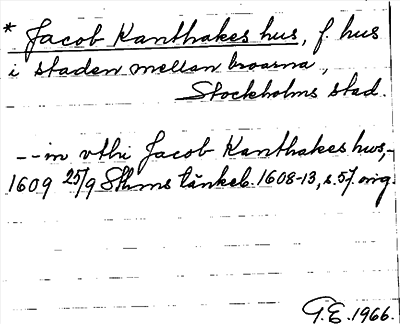 * Jacob Kanthakes hus, f. hus
i staden mellan broarna,
Stockholms stad.
--in vthi Jacob Kanthakes hws,-
1609 25/9 Sthms tänkeb. 1608-13, s. 57. orig.
G.E. 1966.